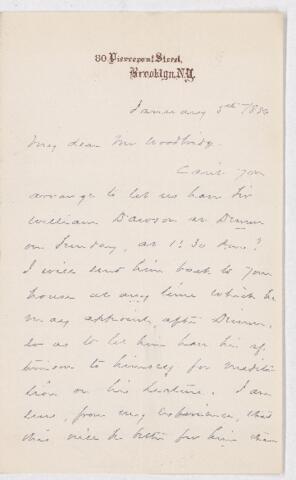 80 Pierrepont Street,
Brooklyn, N.Y.
January 5th 188
My dear Mr Woodbridge
Can't you
arrange to let us have Sir
William Dawson at Dinner
on Sunday, at 1:30
I will send him back to your
house at any time which he
may appoint, after Dinner,
so as to let him have his af
ternoon to himself for medita
tion on his lecture. I am
sure, from my experience, that
this will be better for him than